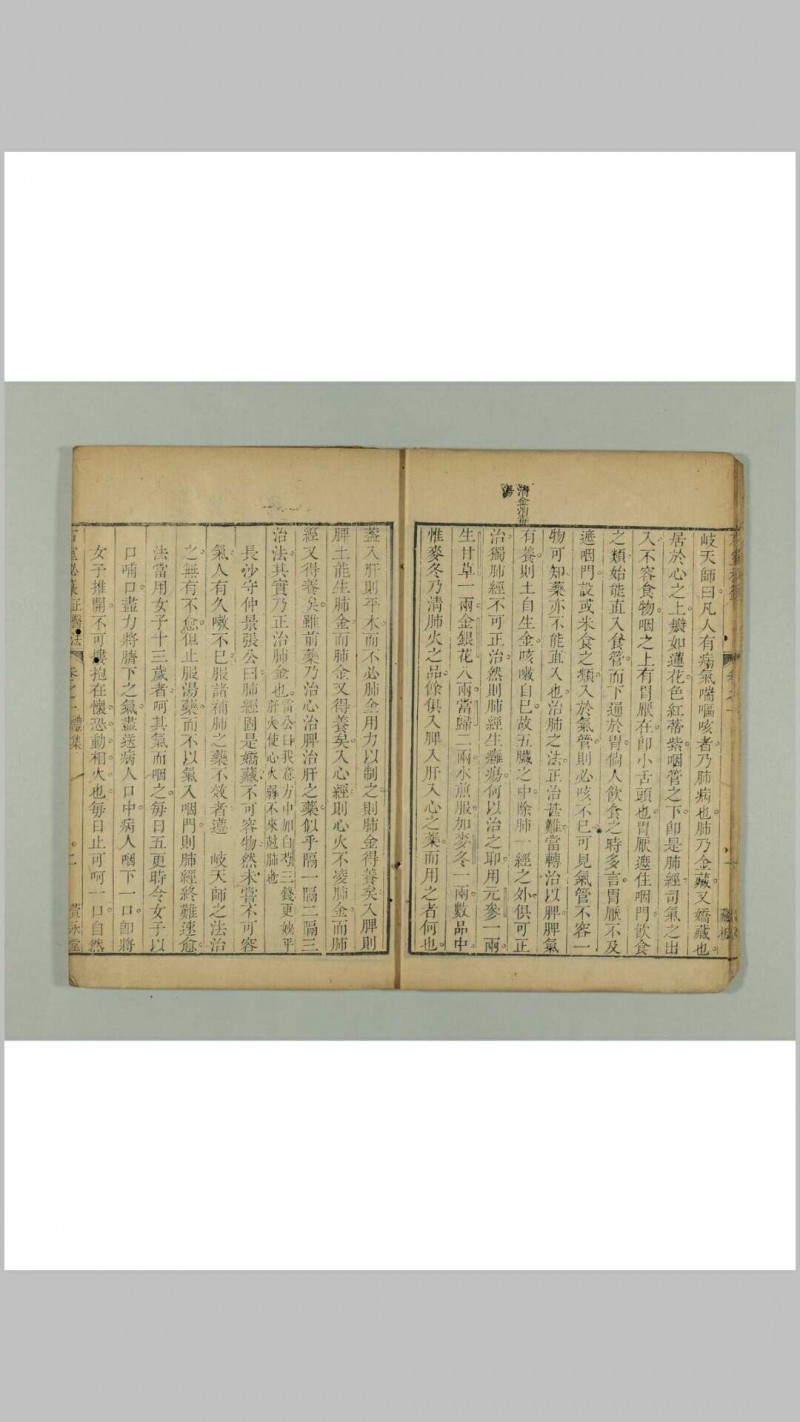 岐天師曰凡人有病氣喘嘔咳者乃肺病也肺乃金藏又嬌藏也
居於心之上瓣如蓮花色紅蒂紫咽管之下卽是肺經司氣之出
入不容食物咽之上有胃厭在卽小舌頭也胃厭遮住咽門飲食
之類始能直入食管而下通於胃倘人飲食之時多言胃厭不及
遮咽門設或米食之類入於氣管則必咳不已可見氣管不容一
物可知藥亦不能直入也治肺之法正治甚難當轉治以脾脾氣
有養則土自生金咳嗽自已故五臟之中除肺一經之外俱可正
治獨肺經不可正治然則肺經生癰瘍何以治之耶用元參一兩
生甘草一兩金銀花八兩當歸二兩水煎服加麥冬一兩數品中
惟麥冬乃清肺火之品餘俱入脾入肝入心之藥而用之者何也
蓋入肝則平木而不必肺金用力以制之則肺金得養矣入脾則
脾土能生肺金而肺金又得養矣入心經則心火不凌肺金而肺
經又得養矣雖前藥乃治心治脾治肝之藥似乎隔一隔二隔三
治法其實乃正治肺金也雷公曰我意方中加白芍三錢更妙平
肝火使心火弱不來尅肺也
長沙守仲景張公曰肺經固是嬌藏不可容物然未嘗不可容
氣人有久嗽不已服諸補肺之藥不效者遵 岐天師之法治
之無有不愈但止服湯藥而不以氣入咽門則肺經終難速愈
法當用女子十三歲者呵其氣而咽之每日五更時令女子以
口哺口盡力將臍下之氣盡送病人口中病人咽下一口卽將
女子推開不可摟抱在懷恐動相火也每日止可呵一口自然